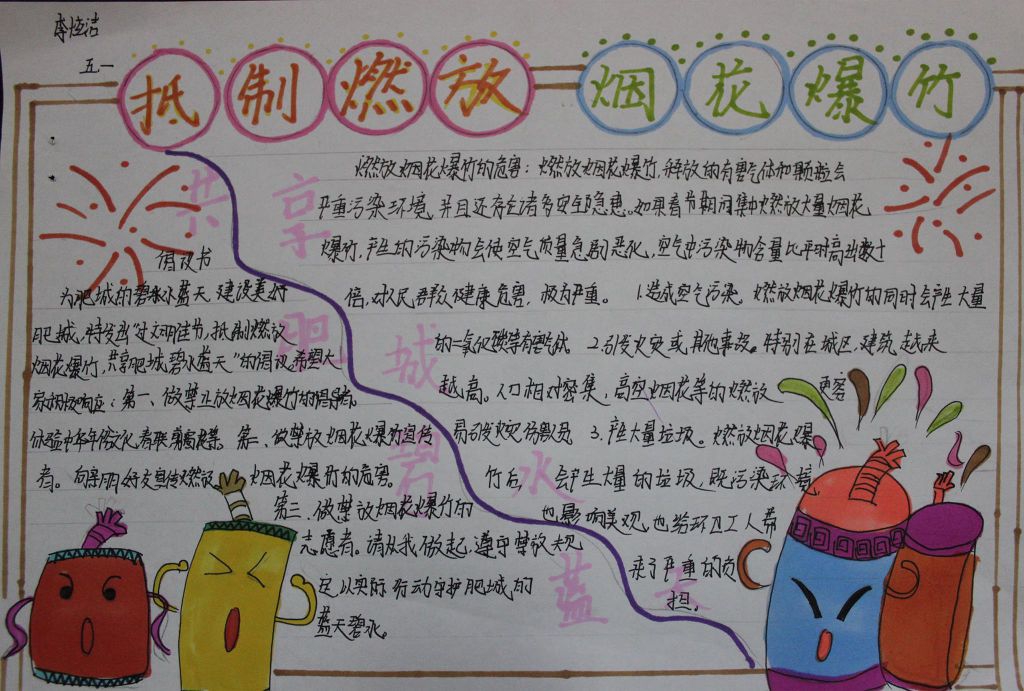 李恒洁
五一
抵制燃放 烟花爆竹
共享
肥城
碧水
蓝天
倡议书
为肥城的碧水蓝天,建设美好
肥城,特发出"过文明佳节,抵制燃放
烟花爆竹,共享肥城碧水蓝天"的倡议,希望大
家积极响应:第一、做禁止放烟花爆竹的倡导者。
体验中华年俗文化,春联剪窗花等。第二、做禁放烟花爆竹宣传
者。向亲朋好友宣传燃放烟花爆竹的危害。
第三、做禁放烟花爆竹的
志愿者。请从我做起,遵守禁放规
定以实际行动守护肥城的
蓝天碧水。
燃放烟花爆竹的危害:燃放烟花爆竹,释放的有害气体和颗粒会
严重污染环境,并且还存在着多安全隐患。如果春节期间集中燃放大量烟花
爆竹,产生的污染物会使空气质量急剧恶化,空气中污染物含量比平时高出数十
倍,对人民群众健康危害,极为严重。 1.造成空气污染。燃放烟花爆竹的同时会产生大量
的二氧化硫等有害气体 2.引发火灾或其他事故。特别在城区,建筑越来
越高。人口相对密集,高空烟花等的燃放更容
易引发火灾伤毁员 3.产生大量垃圾。燃放烟花爆
竹后会产生大量的垃圾,既污染环境,
也影响美观,也给环卫工人带
来了严重的负
担,